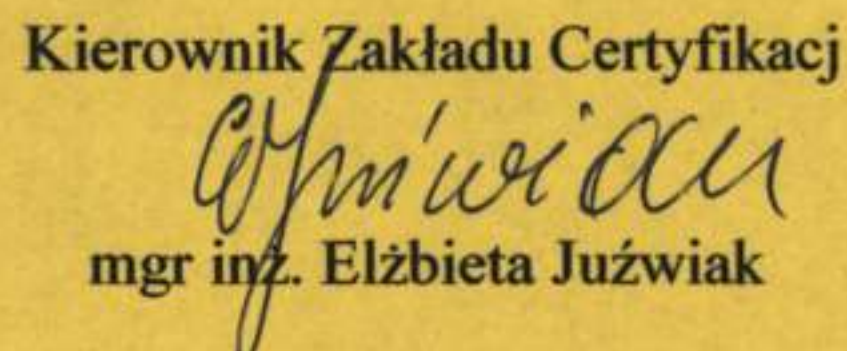 Kierownik Zakładu Certyfikacj
mgr inż. Elżbieta Juźwiak